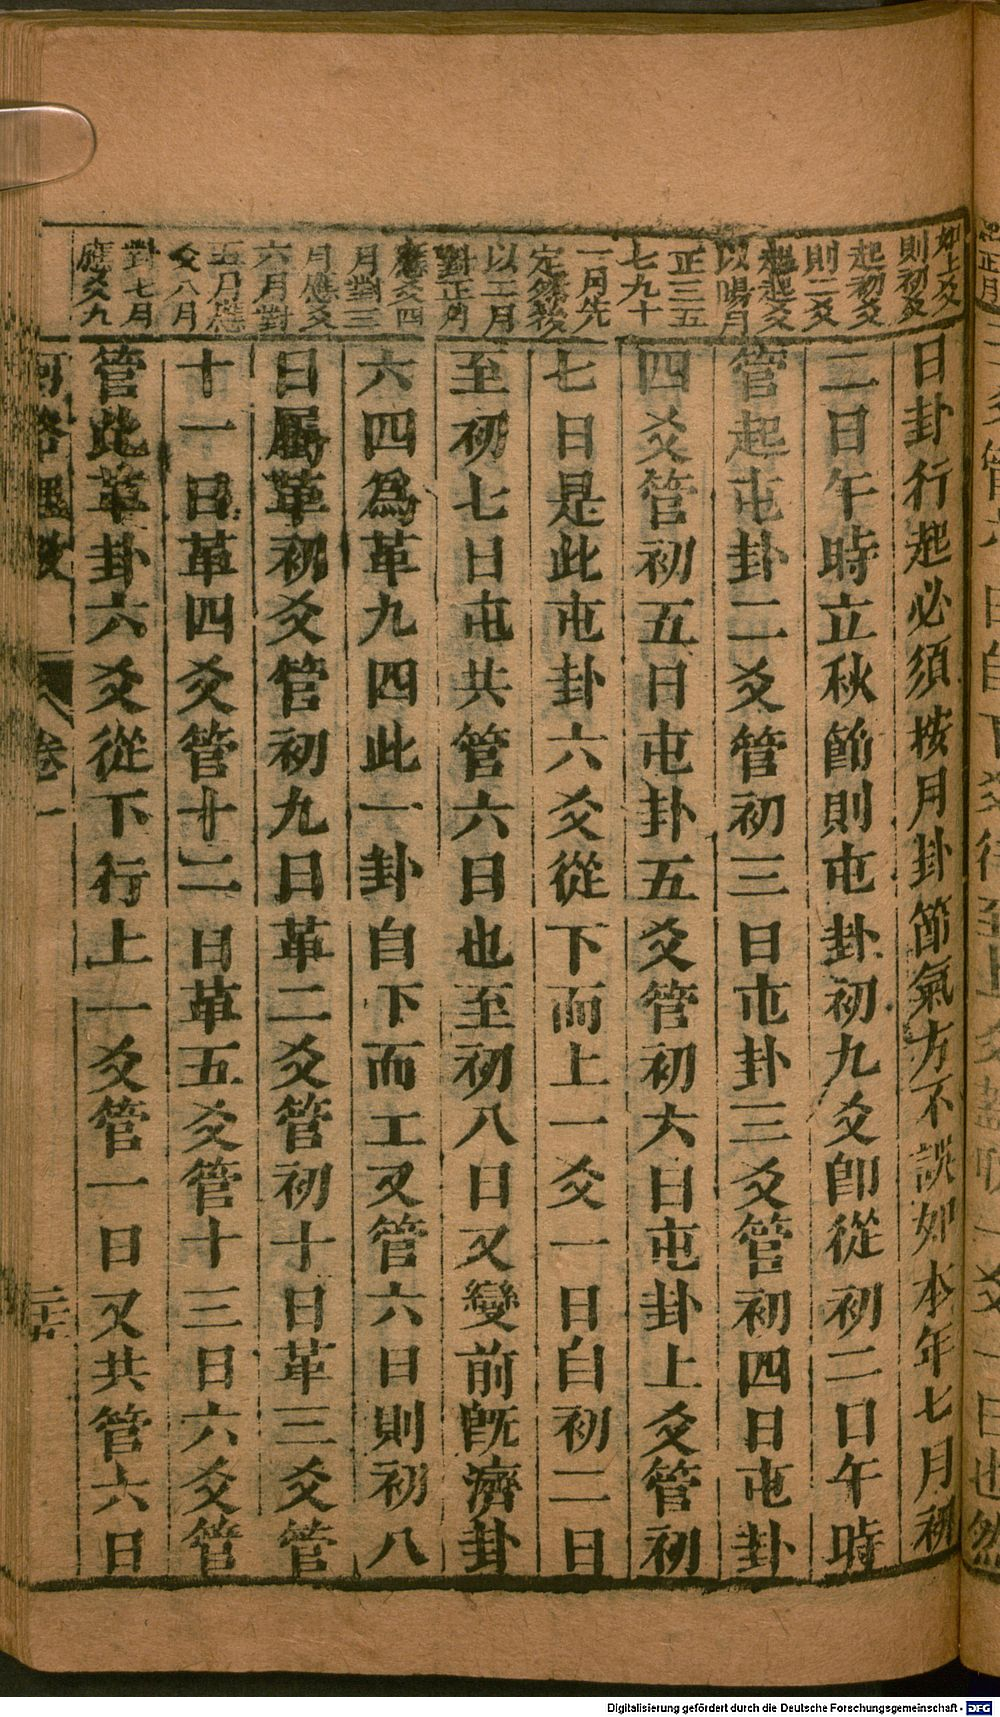 如上爻
則初爻
起初爻
則二爻
起起爻
以陽月
正三五
七九十
一月先
定然後
以二月
對正月
應爻四
月對三
月應爻
六月對
五月應
爻八月
對七月
應爻九
日卦行起必須按月卦節氣方不誤如本年七月初
二日午時立秋節則屯卦初九爻卽從初二日午時
管起屯卦二爻管初三日屯卦三爻管初四日屯卦
四爻管初五日屯卦五爻管初六日屯卦上爻管初
七日是此屯卦六爻從下而上一爻一日自初二日
至初七日屯共管六日也至初八日又變前旣濟卦
六四爲革九四此一卦自下而工又管六日則初八
日屬革初爻管初九日革二爻管初十日革三爻管
十一日革四爻管十二日革五爻管十三日六爻管
管此革卦六爻從下行上一爻管一日又共管六日
河洛理數 卷一 二十六
Digitalisierung gefördert durch die Deutsche Forschungsgemeinschaft - DFG